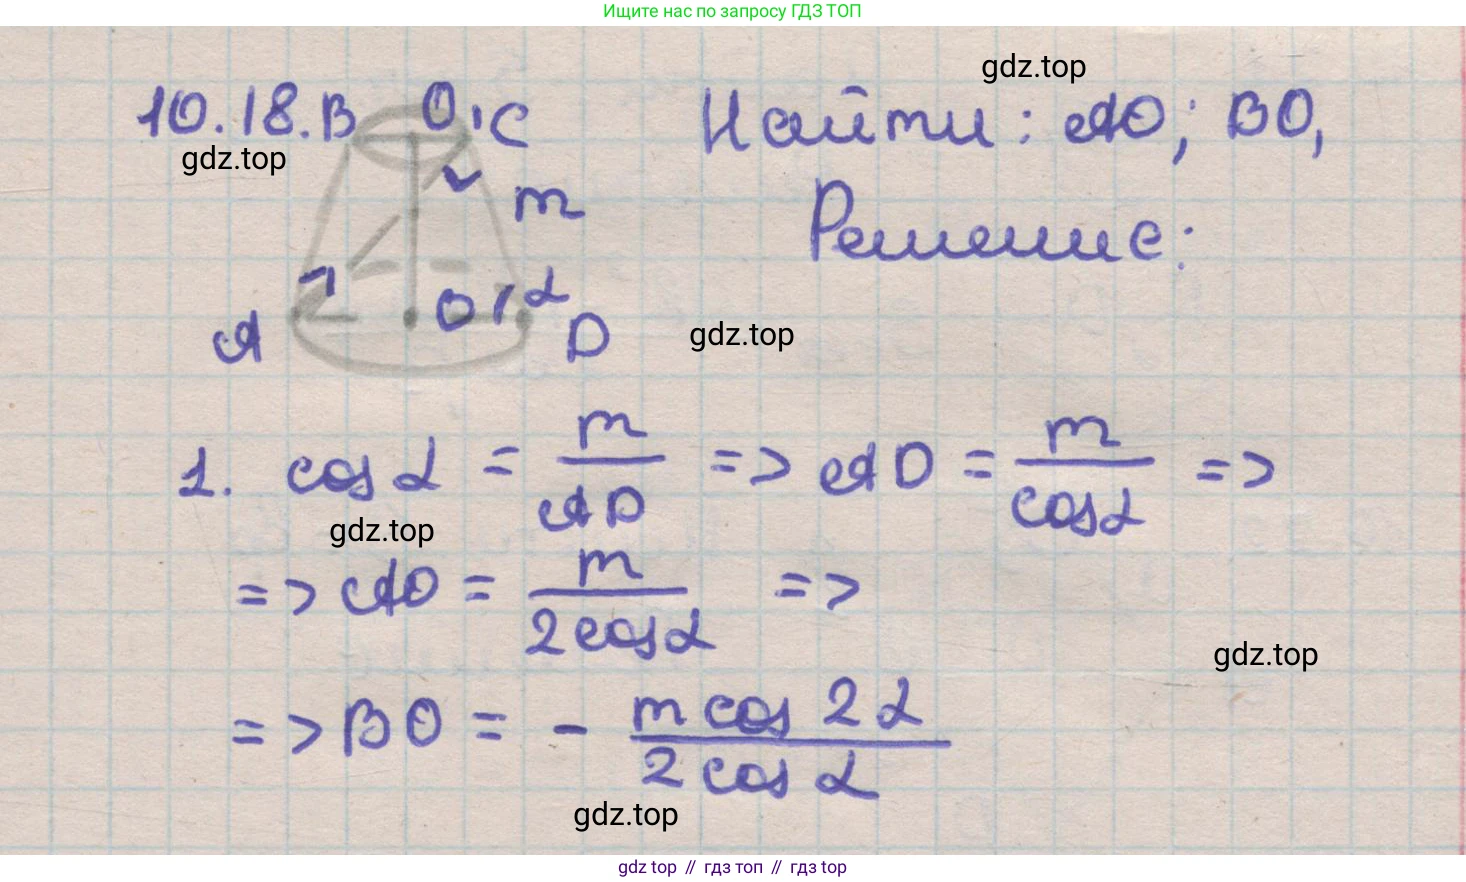 Ищите нас по запросу ГДЗ ТОП
gdz.top
10.18. B O₁ C
Найти: AO; BO₁
gdz.top
m
Решение:
O α
A D
gdz.top
1. cos α = m/AD => AD = m/cos α =>
gdz.top
=> AO = m/(2 cos α) =>
gdz.top
=> BO = - m cos 2α/(2 cos α)
gdz.top
gdz top // гдз топ // гдз top